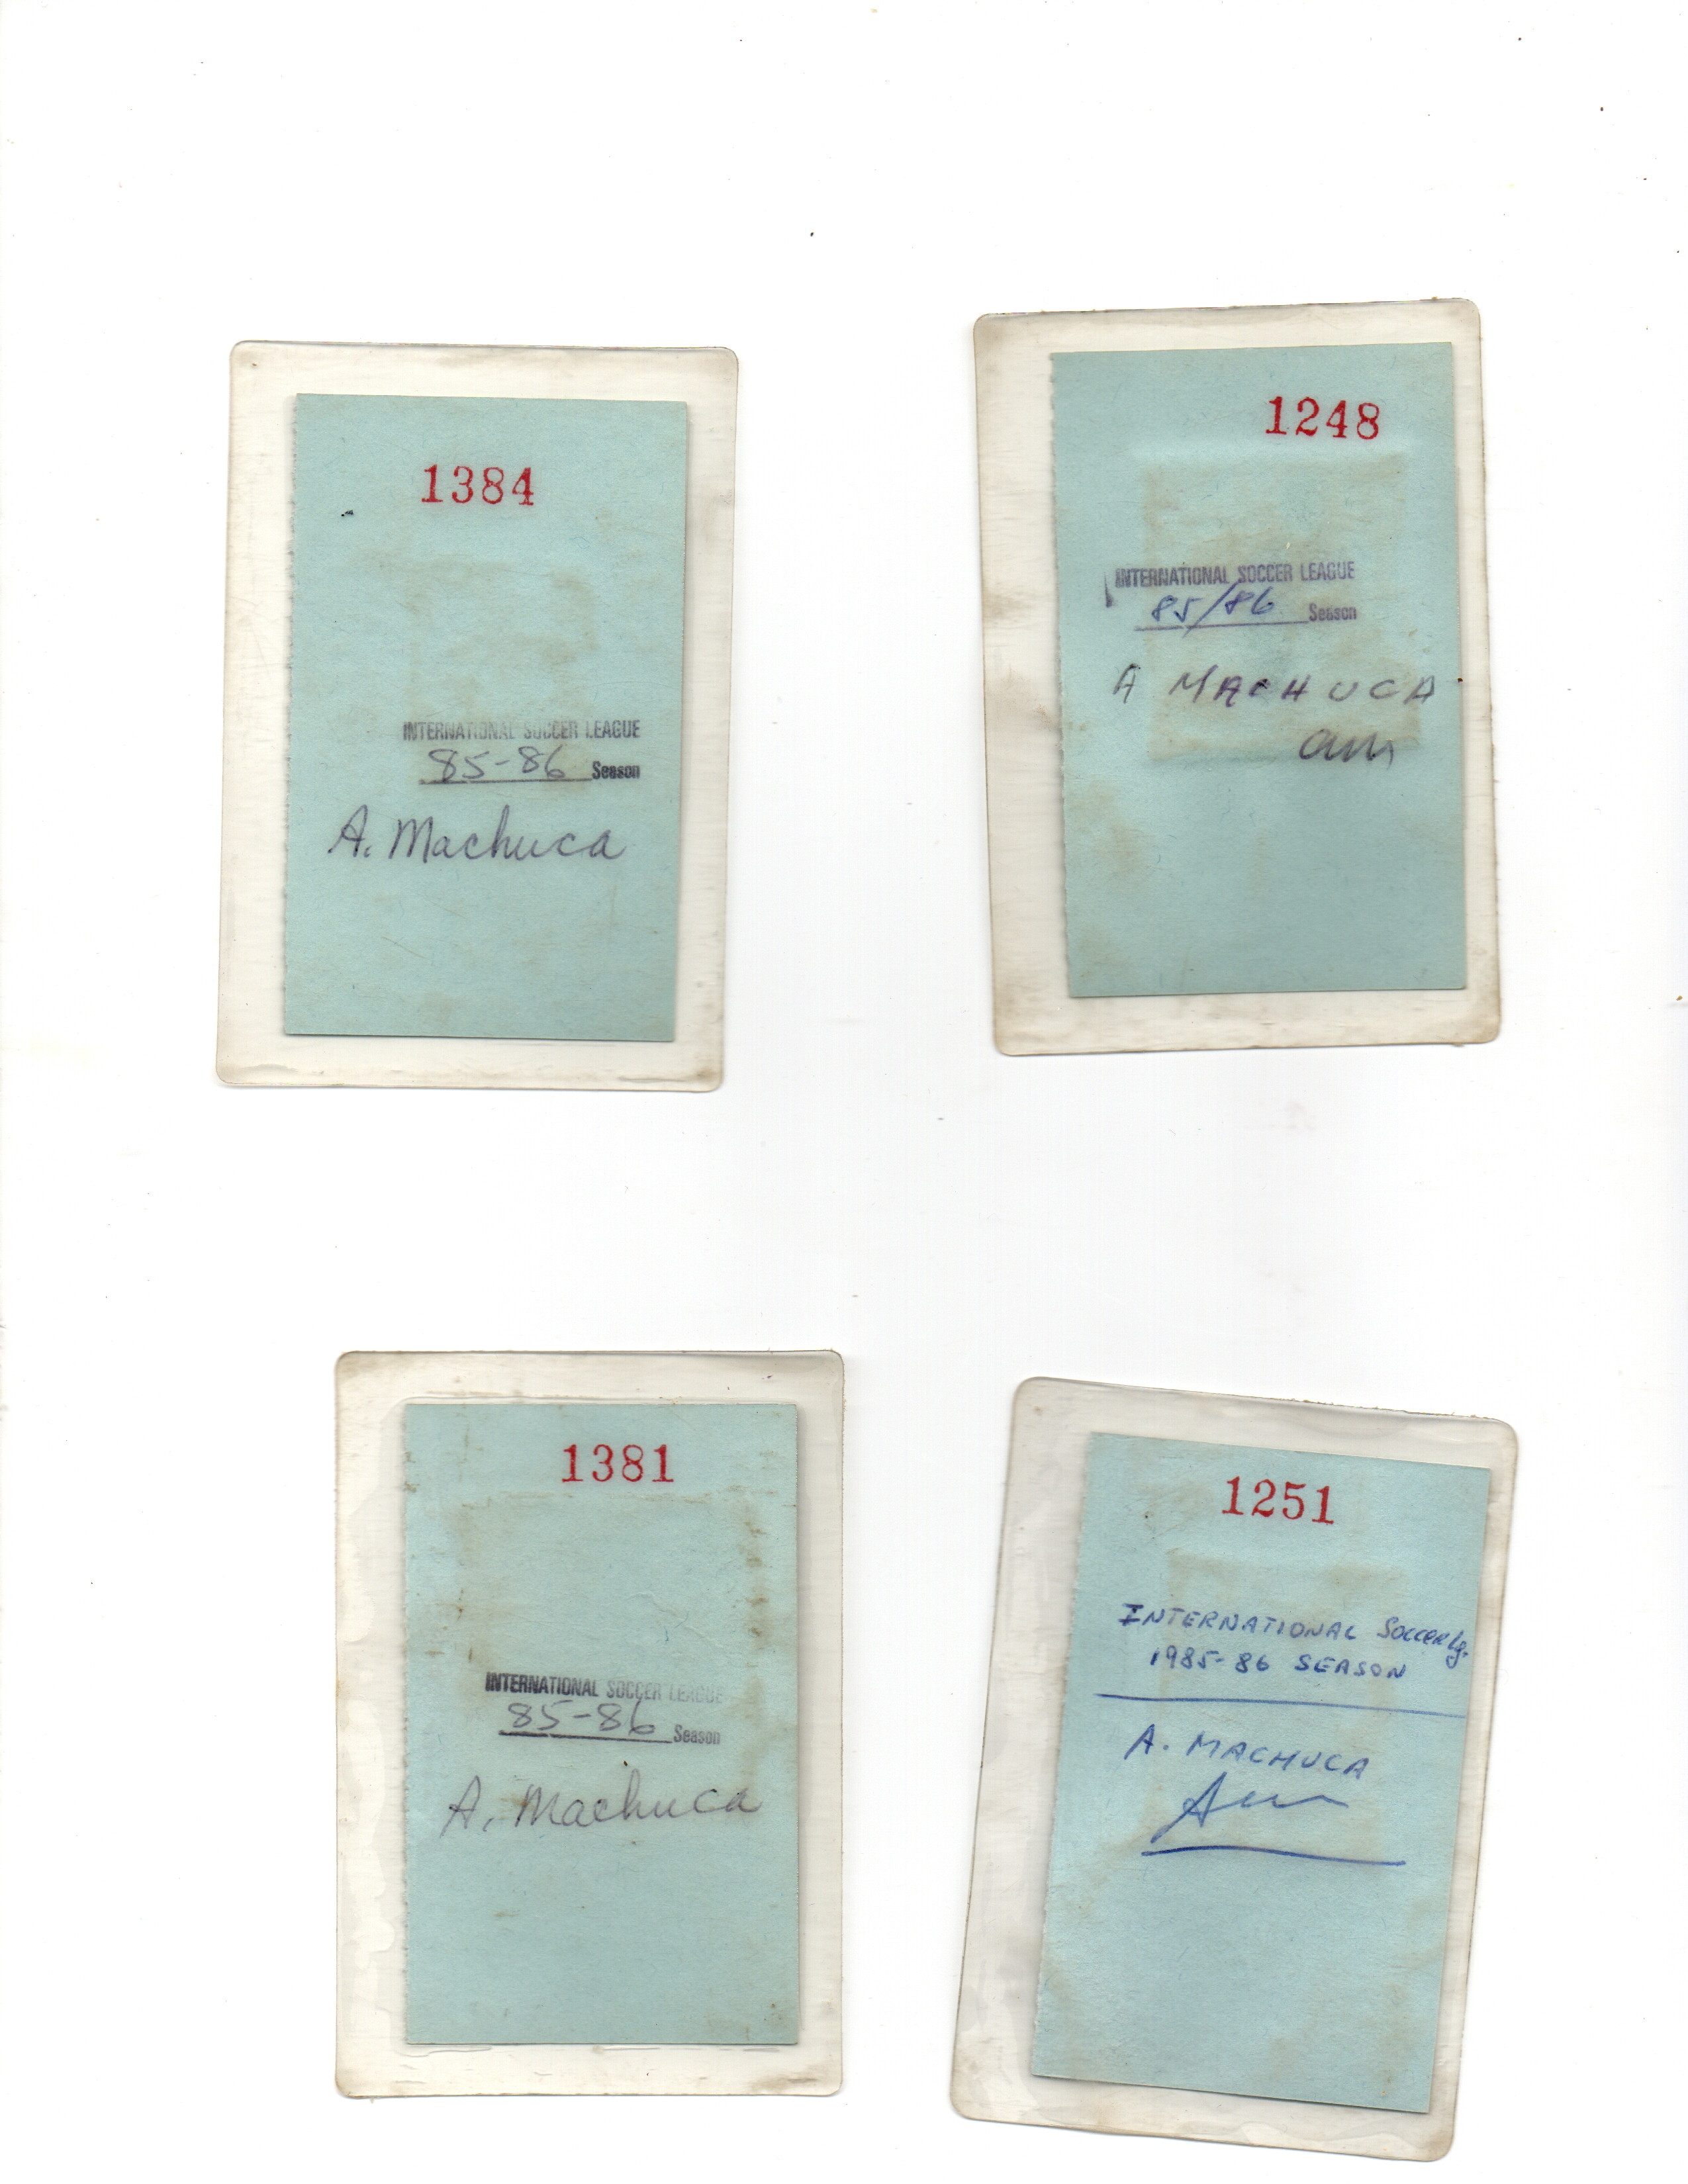 1384
INTERNATIONAL SOCCER LEAGUE
85-86 Season
A. Machuca
1248
INTERNATIONAL SOCCER LEAGUE
85/86 Season
A MACHUCA
am
1381
INTERNATIONAL SOCCER LEAGUE
85-86 Season
A. Machuca
1251
INTERNATIONAL SOCCER Lg.
1985-86 SEASON
A. MACHUCA